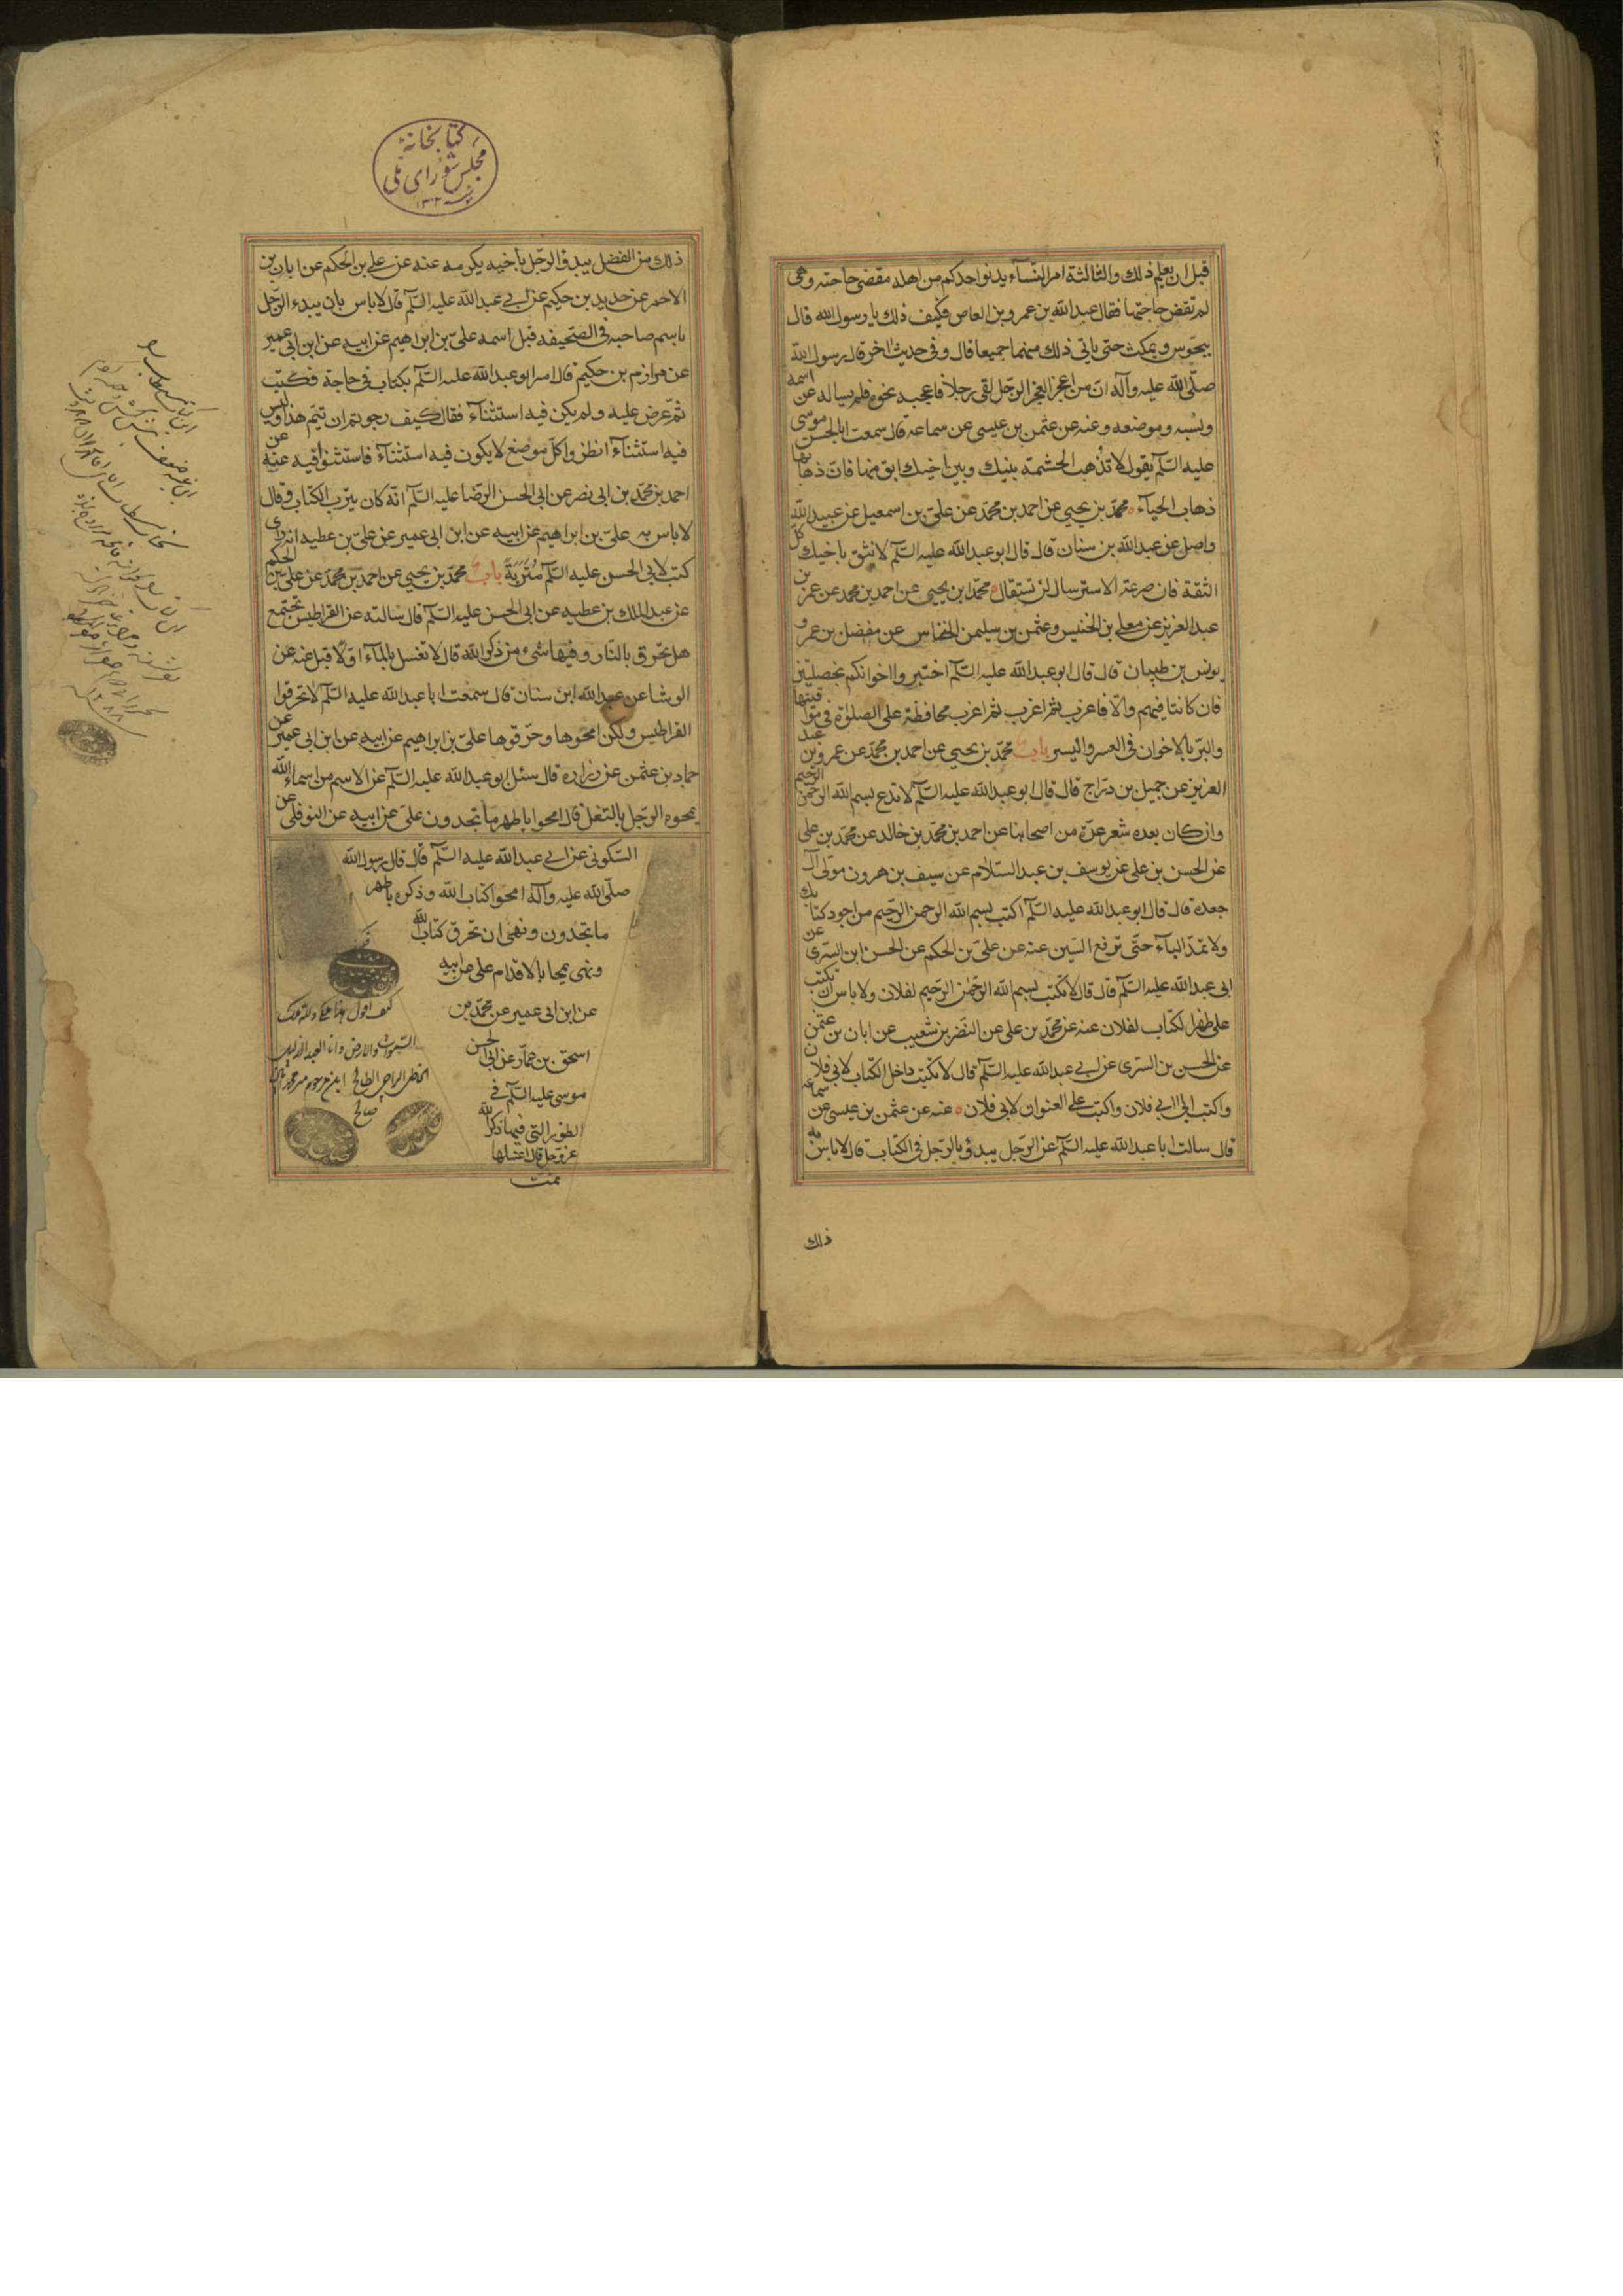 قبل ان يعلم ذلك والثالثة امر النّسآء يدنو احدكم من اهله فيقضى حاجته وهى
لم تقض حاجتها فقال عبد الله بن عمرو بن العاص فكيف ذلك يا رسول الله قال
يتحوس ويمكث حتى ياتى ذلك منهما جميعا قال وفى حديث اخر قال رسول الله
صلّى الله عليه وآله انّ من اعجز العجز الرّجل لقى رجلا فاعجبه نحوه فلم يساله عن اسمه
ونسبه وموضعه وعنه عن عثمن بن عيسى عن سماعة قال سمعت ابا الحسن موسى
عليه السّلم يقول لا تذهب الحشمة بينك وبين اخيك ابق منها فان ذهابها
ذهاب الحيآء محمّد بن يحيى عن احمد بن محمّد عن علىّ بن اسمعيل عن عبيد الله
واصل عن عبد الله بن سنان قال قال ابو عبد الله عليه السّلم لا تثق باخيك كلّ
الثقة فان صرعة الاسترسال لن تستقال محمّد ابن يحيى عن احمد بن محمد عن عمر بن
عبد العزيز عن معلى بن الخنيس وعثمن بن سليمن النخاس عن مفضل بن عمر و
يونس بن ظبيان قال قال ابو عبد الله عليه السّلم اختبروا اخوانكم بخصلتين
فان كانتا فيهم والّا فاعزب ثمّ اعزب ثمّ اعزب محافظة على الصلوة فى مواقيتها
والبرّ بالاخوان فى العسر واليسر باب محمّد بن يحيى عن احمد بن محمّد عن عمرو بن عبد
العزيز عن جميل بن درّاج قال قال ابو عبد الله عليه السّلم لا تدع بسم الله الرحمن الرّحيم
وان كان بعده شعر عدّة من اصحابنا عن احمد بن محمّد بن خالد عن محمّد بن على
عن الحسن بن على عن يوسف بن عبد السّلام عن سيف بن هرون مولى ال
جعدة قال قال ابو عبد الله عليه السّلم اكتب بسم الله الرحمن الرّحيم من اجود كتابك
ولا تمدّ البآء حتّى ترفع السّين عنه عن علىّ بن الحكم عن الحسن ابن السّرى عن
ابى عبد الله عليه السّلم قال قال لا تكتب بسم الله الرّحمن الرّحيم لفلان ولا باس ان تكتب
على ظهر الكتاب لفلان عنه عن محمّد بن على عن النضر بن شعيب عن ابان بن عثمن
عن الحسن بن السرّى عن ابى عبد الله عليه السّلم قال لا تكتب داخل الكتاب لابى فلان
واكتب الى ابى فلان واكتب على العنوان لابى فلان عنه عن عثمن بن عيسى عن سماعة
قال سالت ابا عبد الله عليه السّلم عن الرّجل يبدؤ بالرّجل فى الكتاب قال لا باس به
ذلك
كتابخانهٔ
مجلس شورای ملی
ذلك من الفضل يبدؤ الرّجل باخيه يكرمه عنه عن على بن الحكم عن ابان بن
الاحمر عن حديد بن حكيم عن ابى عبد الله عليه السّلم قال لا باس بان يبدء الرّجل
باسم صاحبه فى الصّحيفه قبل اسمه علىّ بن ابراهيم عن ابيه عن ابن ابى عمير
عن مرازم بن حكيم قال امر ابو عبد الله عليه السّلم بكتاب فى حاجة فكتب
ثمّ عرض عليه ولم يكن فيه استثنآء فقال كيف رجوتم ان تتم هذا وليس
فيه استثنآء انظروا كلّ موضع لا يكون فيه استثنآء فاستثنوا فيه عنه عن
احمد بن محمّد بن ابى نصر عن ابى الحسن الرّضا عليه السّلم انّه كان يترّب الكتاب وقال
لا باس به علىّ بن ابراهيم عن ابيه عن ابن ابى عمير عن علىّ بن عطيه انه راى
كتب لابى الحسن عليه السّلم مُتَرَبَةً باب محمّد بن يحيى عن احمد بن محمّد عن علىّ بن الحكم
عن عبد الملك بن عطيه عن ابى الحسن عليه السّلم قال سالته عن القراطيس تجتمع
هل تحرق بالنّار وفيها شىء من ذكر الله قال لا تغسل بالمآء اوّلا قبل عنه عن
الوشا عن عبد الله ابن سنان قال سمعت ابا عبد الله عليه السّلم لا تحرقوا
القراطيس ولكن امحوها وحرّقوها علىّ بن ابراهيم عن ابيه عن ابن ابى عمير عن
حماد بن عثمن عن زراره قال سئل ابو عبد الله عليه السّلم عن الاسم من اسماء الله
يمحوه الرّجل بالتفل قال امحوا باطهر ما تجدون علىّ عن ابيه عن النوفلى عن
السّكونى عن ابى عبد الله عليه السّلم قال قال رسول الله
صلّى الله عليه وآله امحوا كتاب الله وذكره باطهر
ما تجدون ونهى ان تحرق كتاب الله
ونهى يمحا بالاقدام على عن ابيه
عن ابن ابى عمير عن محمّد بن
اسحق بن عمّار عن ابى الحسن
موسى عليه السّلم فى
الظهور التى فيها ذكر الله
عزّ وجلّ قال اغسلها
تمت
كيف اقول هذا ملكى ولله ملك
السّموات والارض وانا العبد الذليل
صالح